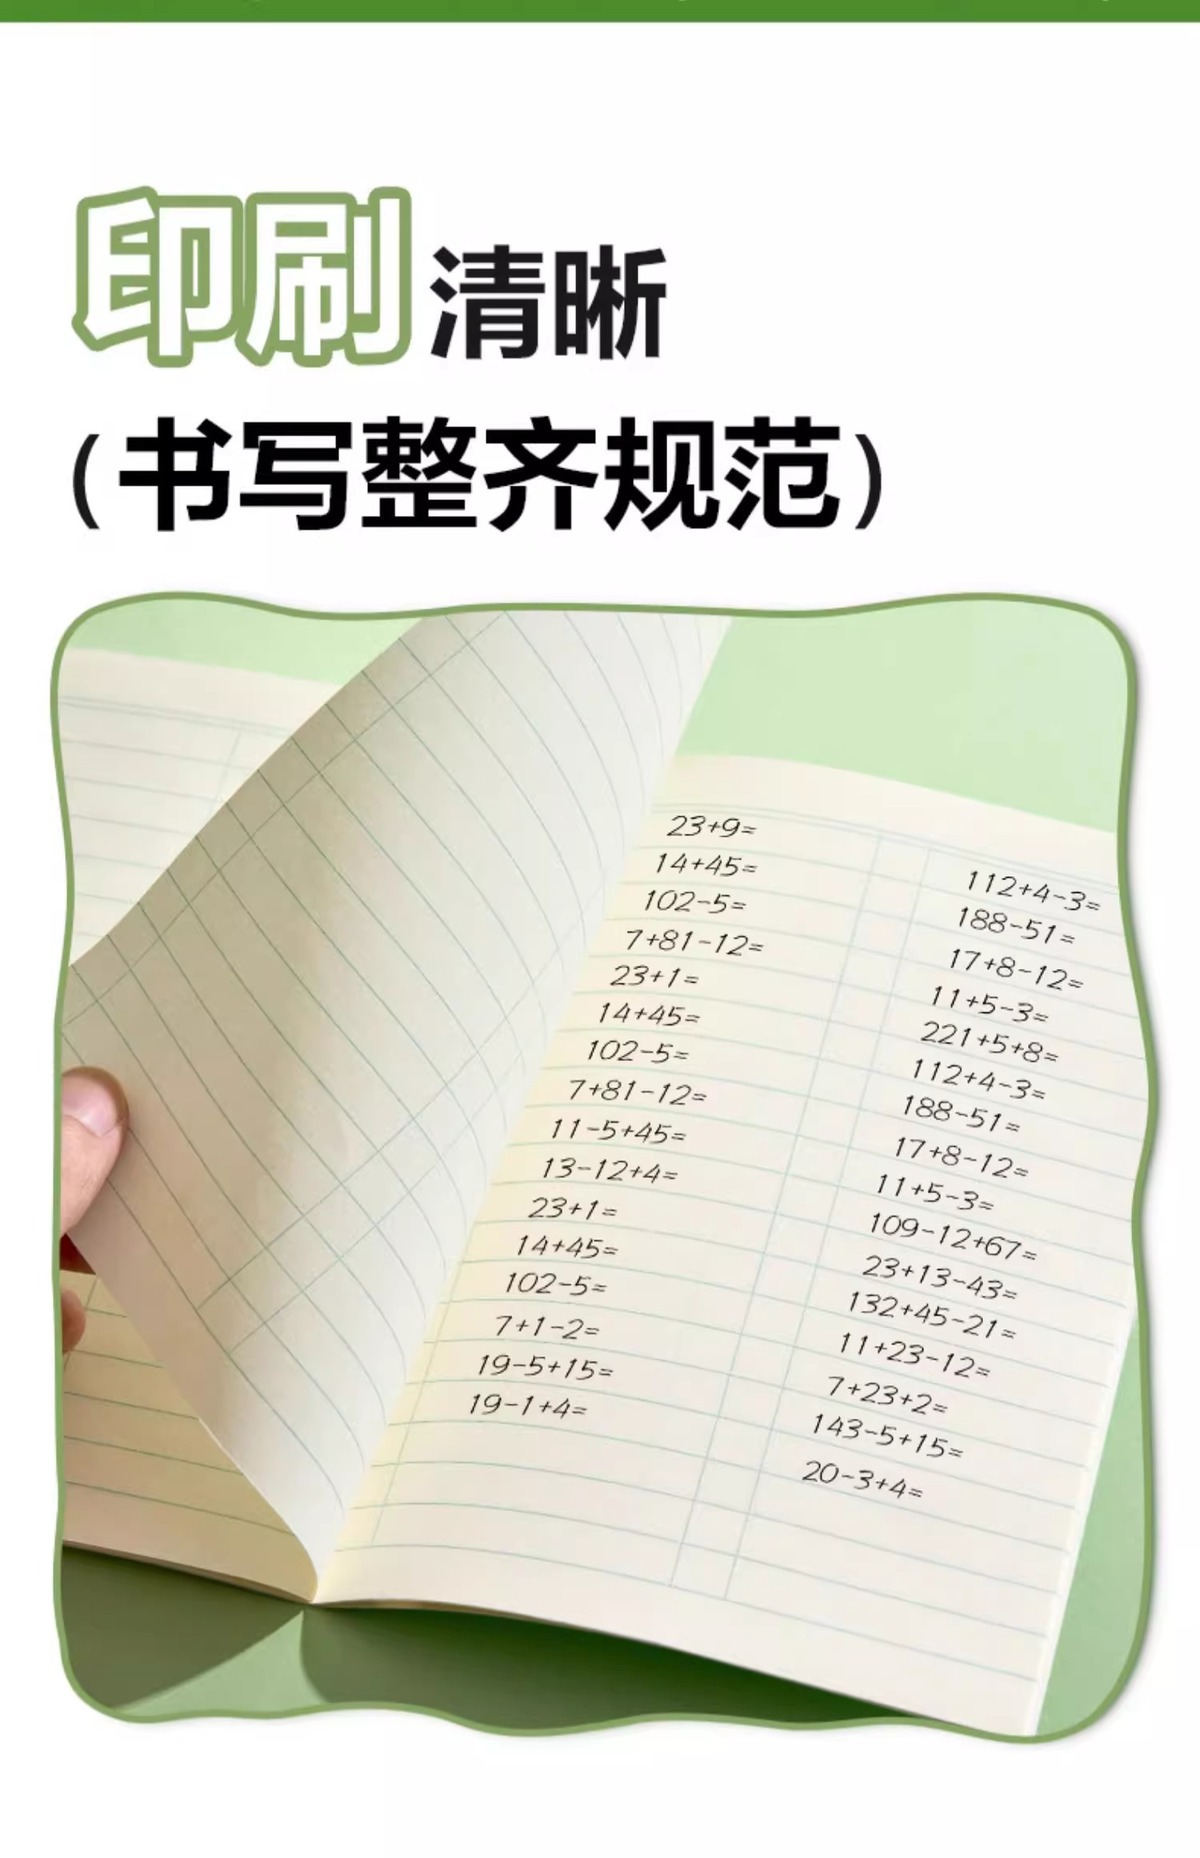 印刷清晰
(书写整齐规范)
23+9=
14+45=
102-5=
7+81-12=
23+1=
14+45=
102-5=
7+81-12=
11-5+45=
13-12+4=
23+1=
14+45=
102-5=
7+1-2=
19-5+15=
19-1+4=
112+4-3=
188-51=
17+8-12=
11+5-3=
221+5+8=
112+4-3=
188-51=
17+8-12=
11+5-3=
109-12+67=
23+13-43=
132+45-21=
11+23-12=
7+23+2=
143-5+15=
20-3+4=